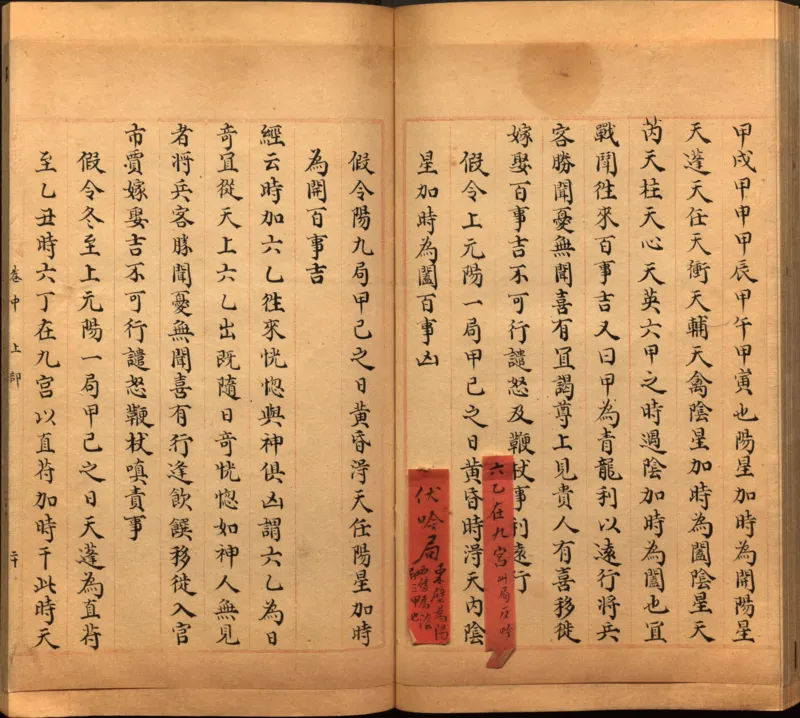 甲戌甲申甲辰甲午甲寅也陽星加時為開陽星
天蓬天任天衝天輔天禽陰星加時為闔陰星天
芮天柱天心天英六甲之時遇陰加時為闔也宜
戰鬪徃來百事吉又曰甲為青龍利以遠行將兵
客勝聞憂無聞喜有宜謁尊上見貴人有喜移徙
嫁娶百事吉不可行譴怒及鞭杖事利遠行
假令上元陽一局甲己之日黄昏時淂天内陰
星加時為闔百事凶
六乙在九宮
局反吟
伏吟局
假令陽九局甲己之日黄昏淂天任陽星加時
為開百事吉
經云時加六乙徃來恍惚與神俱凶謂六乙為日
奇宜從天上六乙出既隨日奇恍惚如神人無見
者將兵客勝聞憂無聞喜有行逢飲饌移徙入官
市賈嫁娶吉不可行譴怒鞭杖嗔責事
假令冬至上元陽一局甲己之日天蓬為直苻
至乙丑時六丁在九宮以直苻加時干此時天
卷中 上部
二十